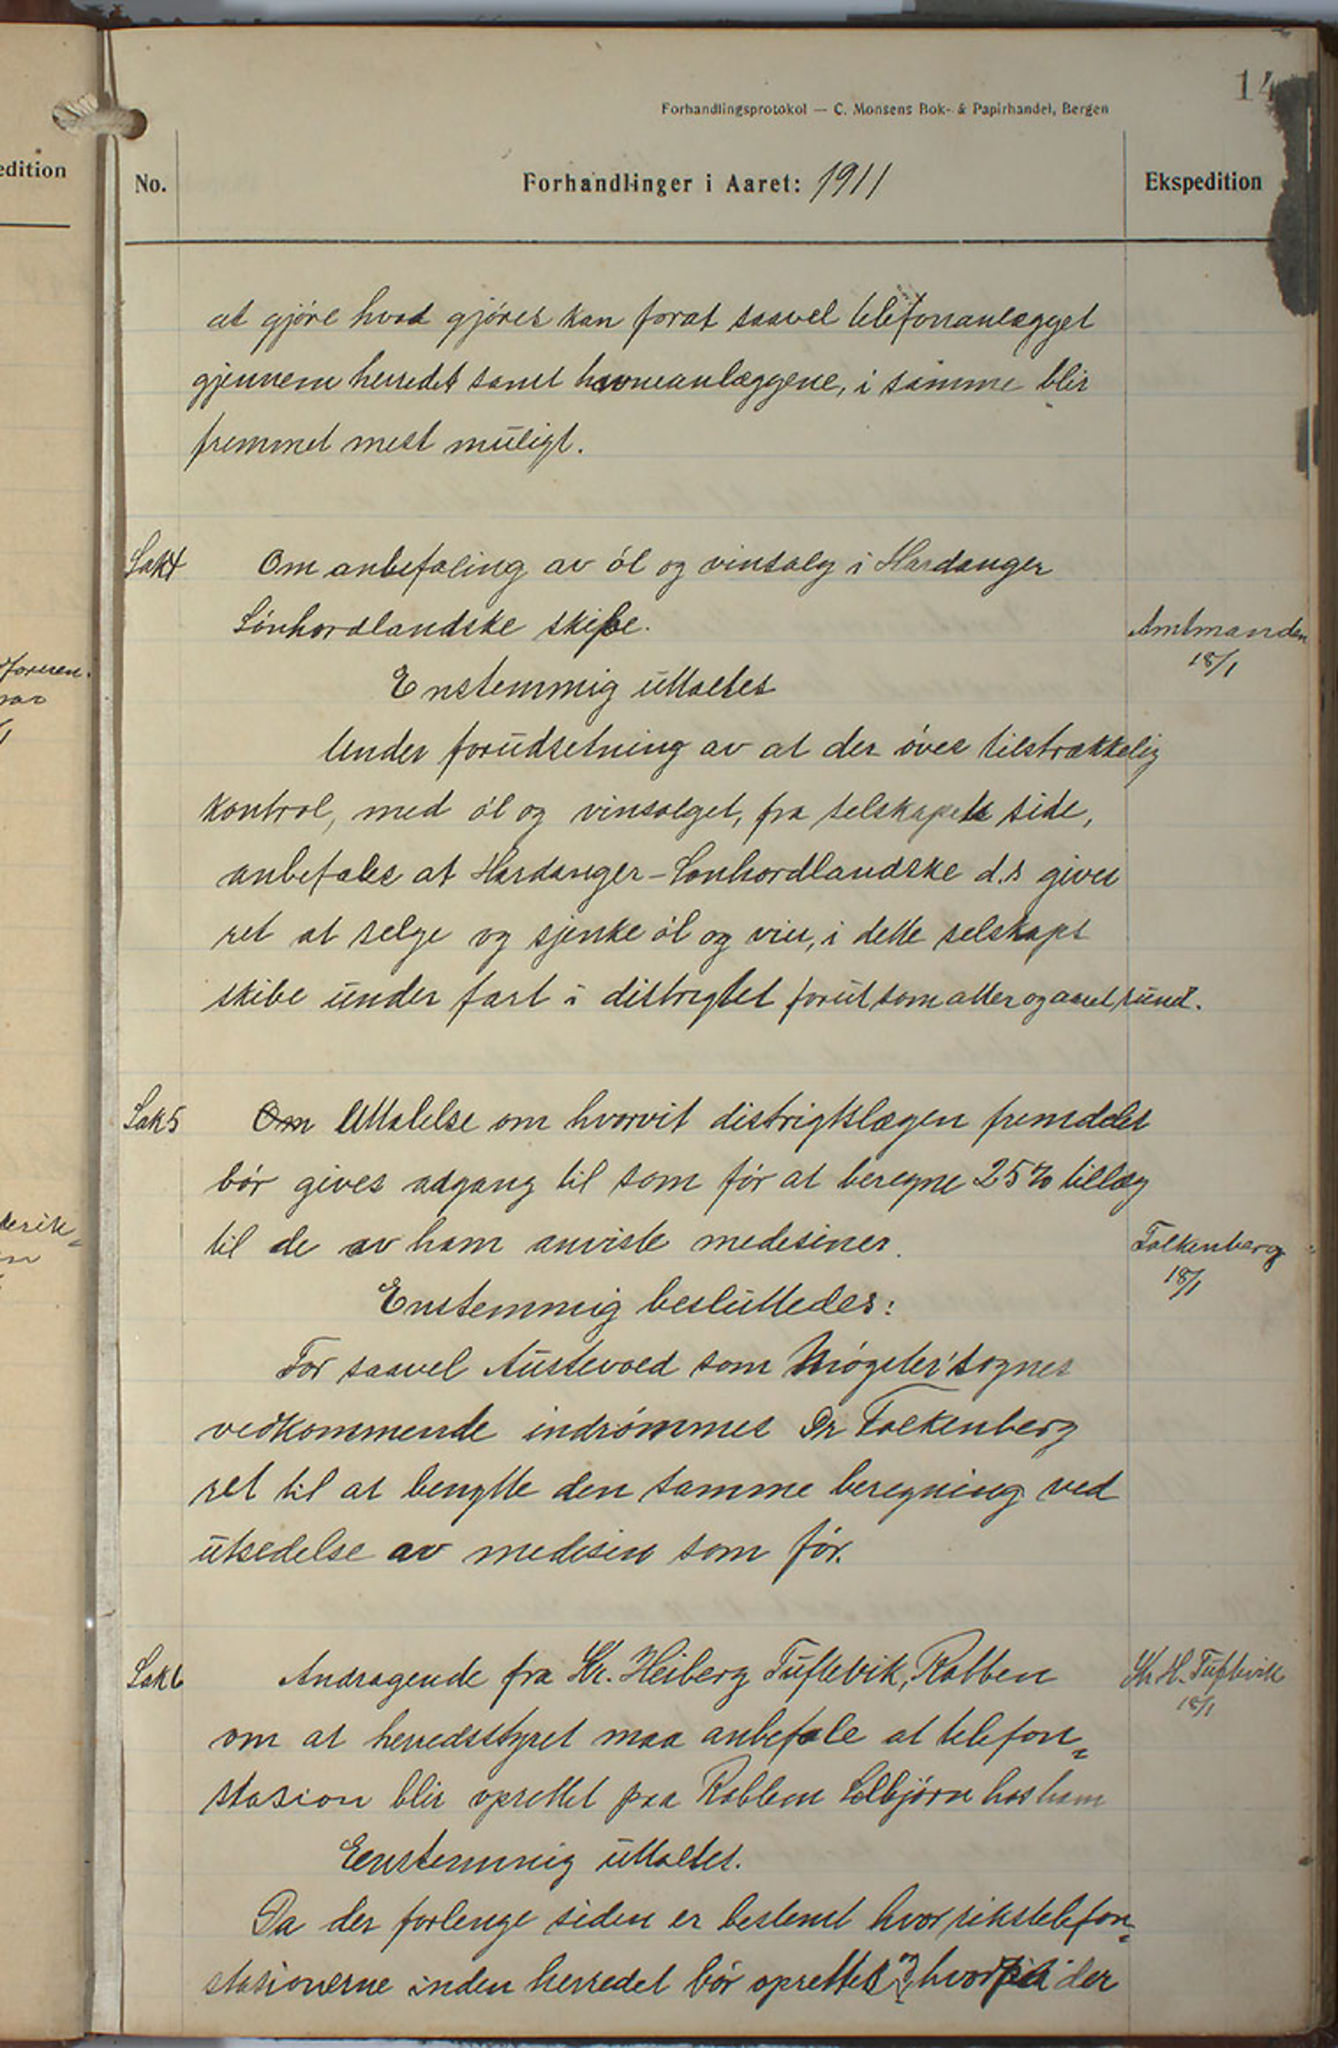 14
Forhandlingsprotokol — C. Monsens Bok- & Papirhandel, Bergen
edition
No.
Forhandlinger i Aaret: 1911
Ekspedition
at gjøre hvad gjøres kan forat saavel telefonanlægget
gjennem herredet samt havneanlæggene, i samme blir
fremmet mest muligt.
Sak 4
Om anbefaling av øl og vinsalg i Hardanger
Sönhordlandske skibe.
Amtmanden
18/1
Enstemmig uttaltes
Under forudsetning av at der øves tilstrækkelig
kontrol, med øl og vinsalget, fra selskapets side,
anbefales at Hardanger-Sønhordlandske d.s gives
ret at selge og sjenke øl og vin, i dette selskaps
skibe under fart i distrigtet forut som atter og aaret rundt.
Sak 5
Om Uttalelse om hvorvit distrigtslægen fremdeles
bør gives adgang til som før at beregne 25% tillæg
til de av ham anviste medesiner.
Falkenberg
18/1
Enstemmig besluttedes:
For saavel Austevold som Møgster sognes
vedkommende indrømmes Dr Falkenberg
ret til at benytte den samme beregning ved
utsedelse av medisin som før.
Sak 6
Andragende fra Kr. Heiberg Tuftevik, Rabben
Kr. H. Tuftevik
18/1
om at herredsstyret maa anbefale at telefon=
stasion blir oprettet paa Rabben Selbjørn hos ham
Eenstemmig uttaltes.
Da der forlenge siden er bestemt hvor rikstelefon=
stasionerne inden herredet bør oprettes og hvor der